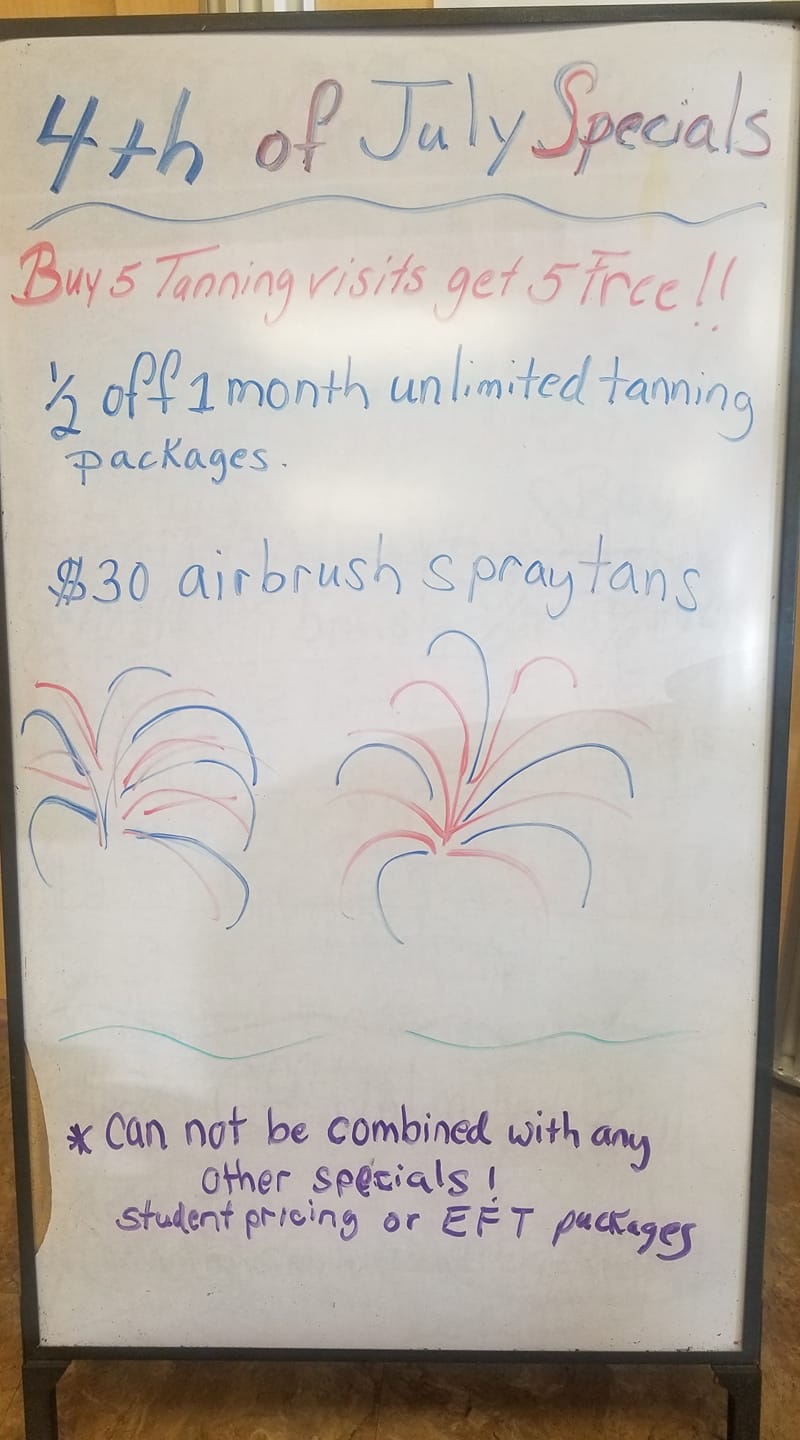 4th of July Specials
Buy 5 Tanning visits get 5 Free!!
1/2 off 1 month unlimited tanning
packages.
$30 airbrush spray tans
* Can not be combined with any
other specials!
student pricing or EFT packages